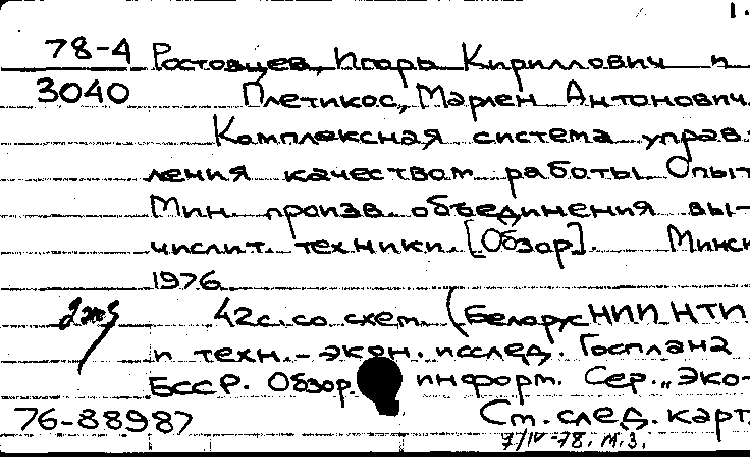 1.
78-4 Ростовцев, Игорь Кириллович и
3040 Плетикос, Марлен Антонович.
Комплексная система управ-
ления качеством работы. Опыт
Мин. произв. объединения вы-
числит. техники. [Обзор]. Минск
1976
2 экз
42с. со схем. (БелорусНИИ НТИ
и техн.-экон. исслед. Госплана
БССР. Обзор. информ. Сер. „Эко-
76-88987 Ст. след. карт.
7/IV-78. М.З.